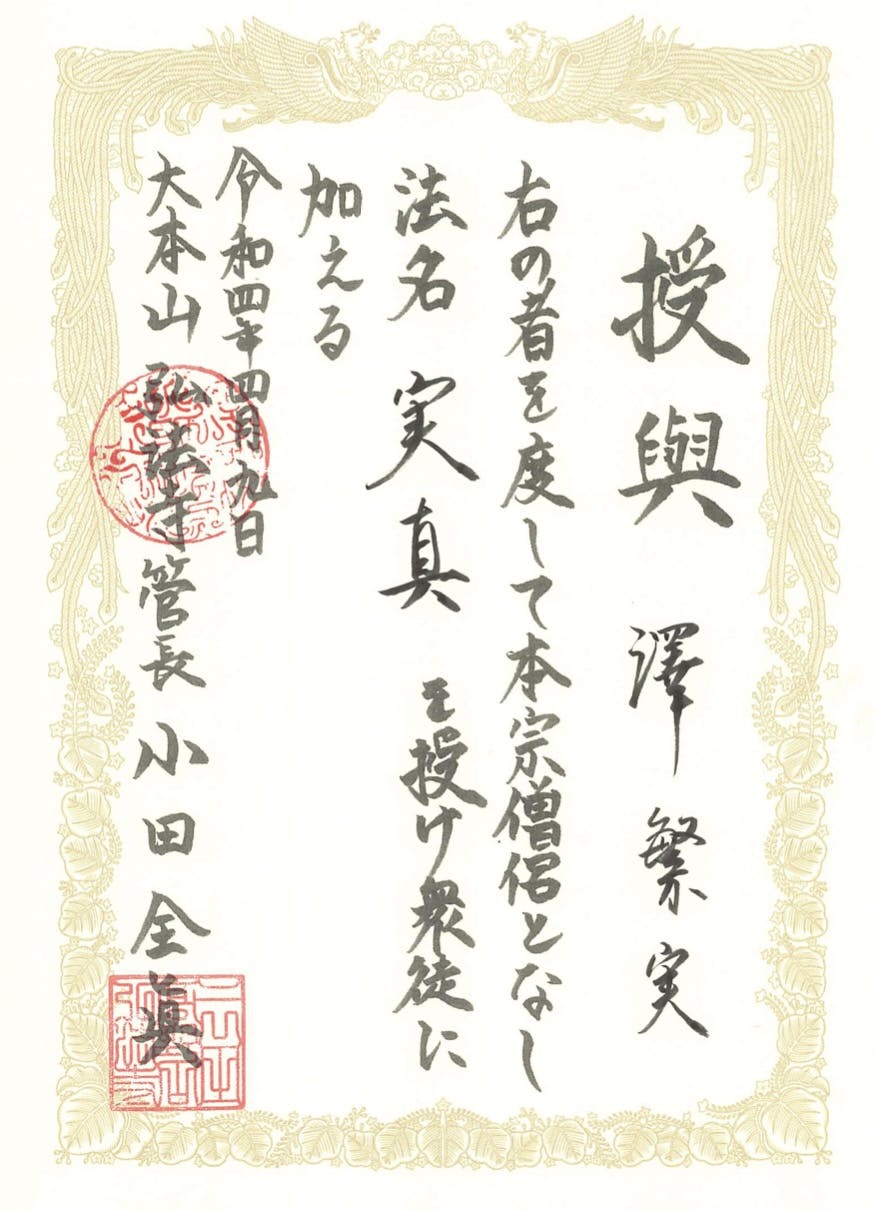 授與 澤繁実
右の者を度して本宗僧侶となし
法名 実真 を授け衆徒に
加える
令和四年四月九日
大本山弘法寺管長 小田全眞